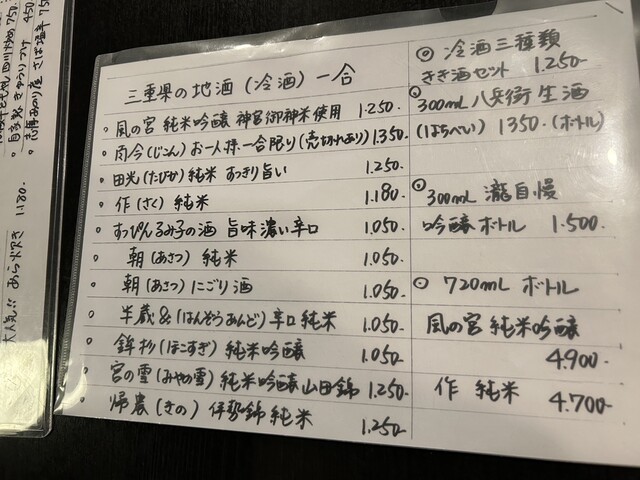 三重県の地酒(冷酒)一合
風の宮 純米吟醸 神宮御神米使用 1.250-
而今(じこん)お一人様一合限り(売切れあり)1.350-
田光(たびか)純米 すっきり旨い 1.250-
作(さく)純米 1.180-
すっぴんるみ子の酒 旨味濃い辛口 1.050-
朝(あさつ)純米 1.050-
朝(あさつ)にごり酒 1.050-
半蔵&(はんぞうあんど)辛口純米 1.050-
鉾杉(ほこすぎ)純米吟醸 1.050-
宮の雪(みやの雪)純米吟醸山田錦 1.250-
帰農(きの)伊勢錦純米 1.250-
冷酒三種類
きき酒セット 1.250-
300mL 八兵衛 生酒
(はちべい)1350.(ボトル)
300mL 瀧自慢
吟醸ボトル 1.500-
720mL ボトル
風の宮 純米吟醸
4.900-
作 純米
4.700-
大人気!! あら炊き 1.180-